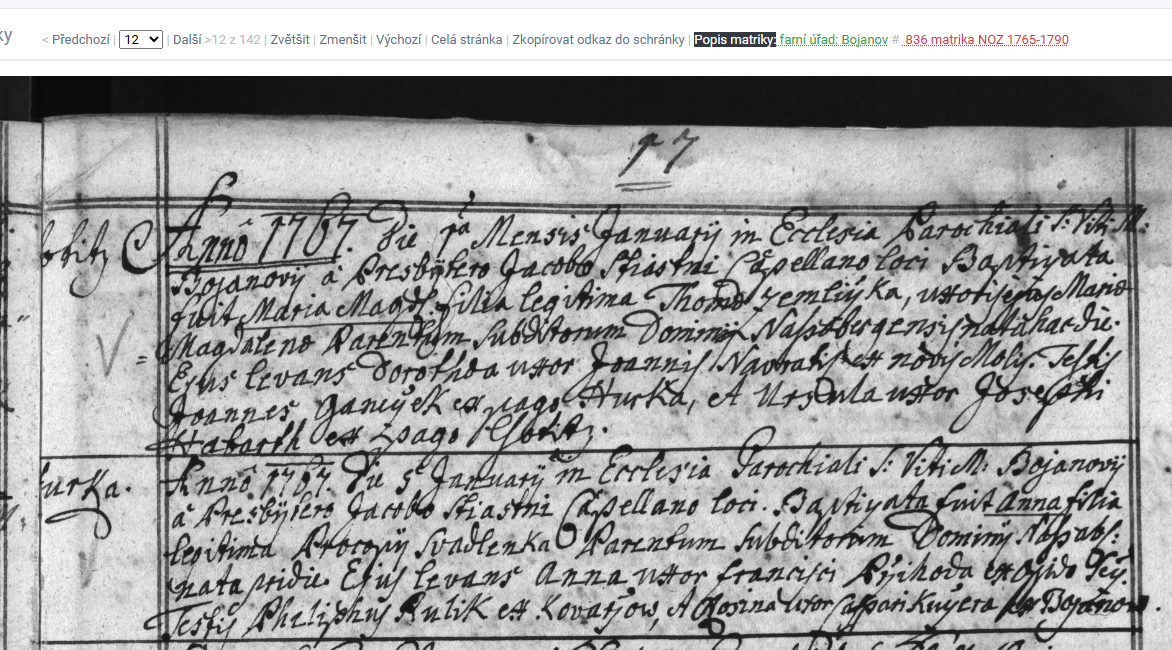 ky < Předchozí | 12 | Další >12 z 142 | Zvětšit | Zmenšit | Výchozí | Celá stránka | Zkopírovat odkaz do schránky | Popis matriky: farní úřad: Bojanov # 836 matrika NOZ 1765-1790
17
Anno 1767. Die 1a Mensis Januarij in Ecclesia Parochiali S: Viti M:
Bojanovij a Presbytero Jacobo Stiastni Capellano loci Baptizata
fuit Maria Magd: filia legitima Thomæ Zemlicžka, uxoris ejus Mariæ
Magdalenæ Parentum Subditorum Dominij Nassabergensis nata hac die.
Ejus levans Dorothæa uxor Joannis Navratil ex novis Molis. Testis
Joannes Ganeyček ex pago Hurka, et Ursula uxor Josephi
ex pago
urka.
Anno 1767. Die 5 Januarij in Ecclesia Parochiali S: Viti M: Bojanovij
a Presbytero Jacobo Stiastni Capellano loci. Baptizata fuit Anna filia
legitima Procopij Svadlenka Parentum Subditorum Dominij Nassab:
nata pridie. Ejus levans Anna uxor Francisci Přihoda ex
Testis Philippus Kulik ex Kovařow, et Rosina uxor Caspari Kučera ex Bojanow.